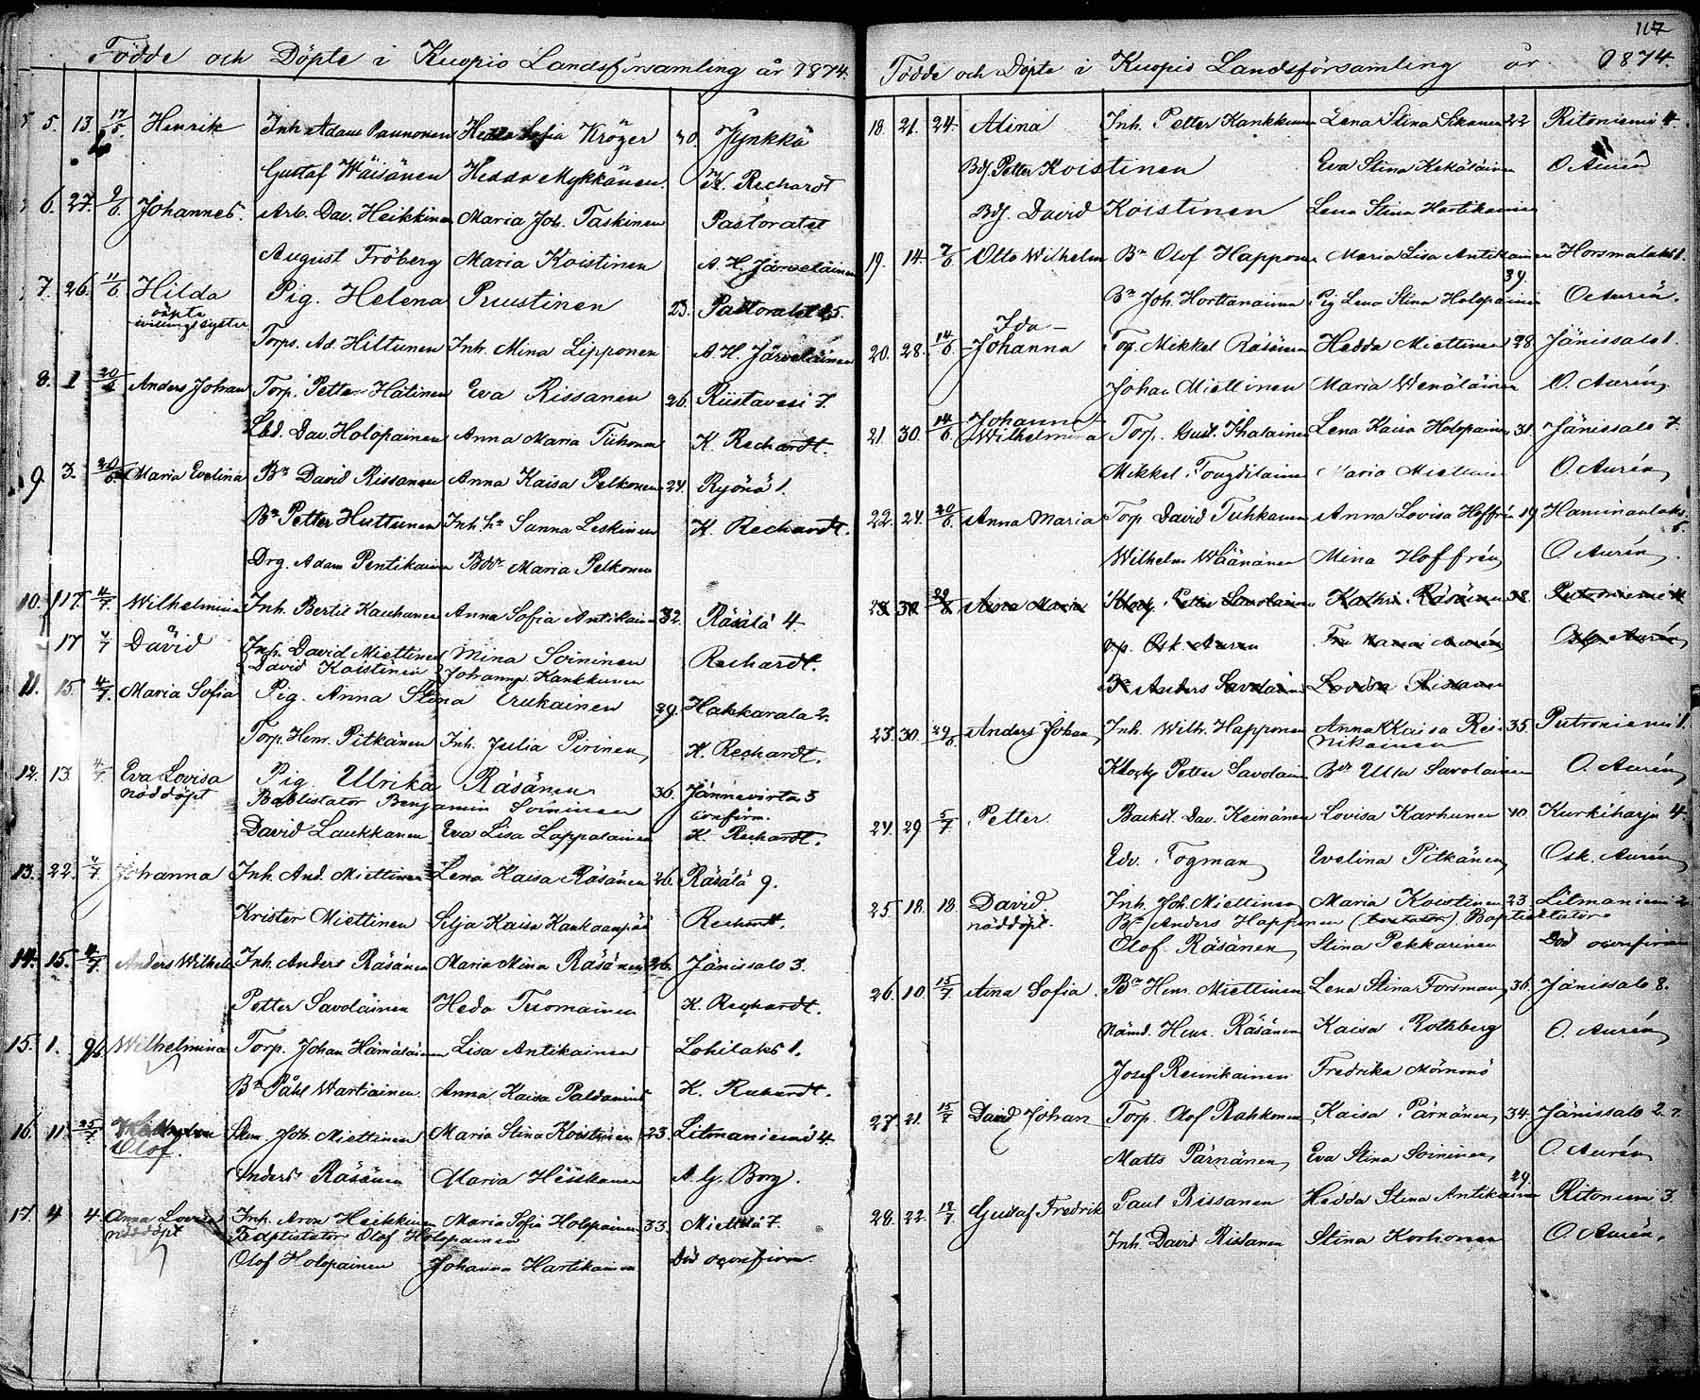 Födde och Döpte i Kuopio Landsförsamling år 1874.
5. 13. 17/5. Henrik Inh. Adam Paunonen Hedda Sofia Kröger 30. Jynkkä
Gustaf Wäisänen Hedda Mykkänen. K. Rechardt
6. 27. Johannes. Arb. Dav. Heikkinen Maria Joh. Taskinen Pastoratet
August Fröberg Maria Koistinen A. H. Järveläinen
7. 26. 11/6 Hilda Pig. Helena Puustinen 23. Pastoratet 25.
oäkta
tvillingsyster
Torp. Ad. Hiltunen Inh. Mina Lipponen A. H. Järveläinen
8. 1 20/6 Anders Johan Torp. Petter Hätinen Eva Rissanen 26. Riistavesi 7.
Dav. Holopainen Anna Maria Tiihonen K. Rechardt.
9. 3. 20/6 Maria Evelina Bn David Rissanen Anna Kaisa Pelkonen 24. Ryönä 1.
Bn Petter Huttunen Inh. Sanna Leskinen K. Rechardt.
Drg. Adam Pentikäinen Maria Pelkonen
10. 17. 4/7. Wilhelmina Inh. Bertil Kauhanen Anna Sofia Antikainen 32. Räsälä 4.
17 4/7 David Inh. David Miettinen Mina Soininen Rechardt.
David Koistinen Johanna Kankkunen
11. 15. 4/7. Maria Sofia Pig. Anna Stina Trukainen 29. Hakkarala 2.
Torp. Henr. Pitkänen Inh. Julia Pirinen, K. Rechardt.
12. 13. 4/7. Eva Lovisa Pig Ulrika Räsänen 36. Jännevirta 3
nöddöpt Baptistator Benjamin Soininen confirm.
David Laukkanen Eva Lisa Lappalainen K. Rechardt.
13. 22. 4/7. Johanna Inh. And. Miettinen Lena Kaisa Räsänen 26. Räsälä 9.
Krister Miettinen Silja Kaisa Kankaanpää Rechardt.
14. 15. 4/7. Anders Wilhelm Inh. Anders Räsänen Maria Mina Räsänen 26. Jänissalo 3.
Petter Savolainen Heda Tuomainen K. Rechardt.
15. 1. Wilhelmina Torp. Johan Hämäläinen Lisa Antikainen Lohilaks 1.
Bn Påhl Wartiainen. Anna Kaisa Paldanius K. Rechardt.
16. 11. 25/7. Olof. Joh. Miettinen Maria Stina Koistinen 23. Litmaniemi 4.
Anders Räsänen Maria Heiskanen A. G. Borg.
17. 4 4. Anna Lovisa Inh. Aron Heikkinen Maria Sofia Holopainen 33. Miettilä 7.
nöddöpt Baptistator Olof Holopainen
Olof Holopainen Johanna Hartikainen Död oconfirm.
117
Födde och Döpte i Kuopio Landsförsamling år 1874.
18. 21. 24. Alina Inh. Petter Kankkunen Lena Stina Sikanen 22 Ritoniemi 4.
Bdj. Petter Koistinen Eva Stina Kekäläinen O. Aurén
Bdj. David Koistinen Lena Stina Hartikainen
19. 14. 7/6 Otto Wilhelm Bn Olof Happonen Maria Lisa Antikainen Horsmalaks 1.
39.
Bn Joh. Horttanainen Pig Lena Stina Holopainen O Aurén.
Ida
20. 28. 14/6 Johanna Torp. Mikkel Räsänen Hedda Miettinen 28 Jänissalo 1.
Johan Miettinen Maria Wenäläinen O. Aurén
21. 30. 14/6 Johanna Wilhelmina Torp. Gust. Ihalainen Lena Kaisa Holopainen 31. Jänissalo 7.
Mikkel Maria Miettinen O. Aurén
22. 24. 20/6 Anna Maria Torp. David Tuhkanen Anna Lovisa Hoffrén 19 Haminanlaks
5.
Wilhelm Wäänänen Mina Hoffrén O Aurén.
23. 30. 29/6 Anna Maria Klock. Petter Savolainen Kathri Räsänen 38. Putroniemi
Osk. Aurén Fru Nanni Aurén Osk. Aurén
Bn Anders Savolainen Lovisa Rissanen
23. 30. 29/6 Anders Johan Inh. Wilh. Happonen Anna Kaisa Rei- 35. Putroniemi 1.
nikainen
Klock. Petter Savolainen Bdr Ulla Savolainen O. Aurén
24. 29 5/7 Petter. Backst. Dav. Keinänen Lovisa Karhunen 40. Kurkiharju 4.
Edv. Fogman, Evelina Pitkänen, Osk. Aurén
25. 18. 18 David Inh. Joh. Miettinen Maria Koistinen 23. Litmaniemi 2.
nöddöpt. Bn Anders Happonen Baptistator
Olof Räsänen, Stina Pekkarinen Död oconfirm
26. 10. 15/7 Aina Sofia. Bn Henr. Miettinen Lena Stina Forsman, 36. Jänissalo 8.
Nämd. Henr. Räsänen Kaisa Rothberg O. Aurén
Josef Reinikainen Fredrika Mörnmö
27. 21. 15/7 David Johan Torp. Olof Rahkonen, Kaisa Pärnänen, 34. Jänissalo 2.
Matts Pärnänen, Eva Stina Soininen, O. Aurén
29.
28. 22. 19/7. Gustaf Fredrik Paul Rissanen Hedda Stina Antikainen Ritoniemi 3.
Inh. David Rissanen Stina Korhonen O. Aurén.